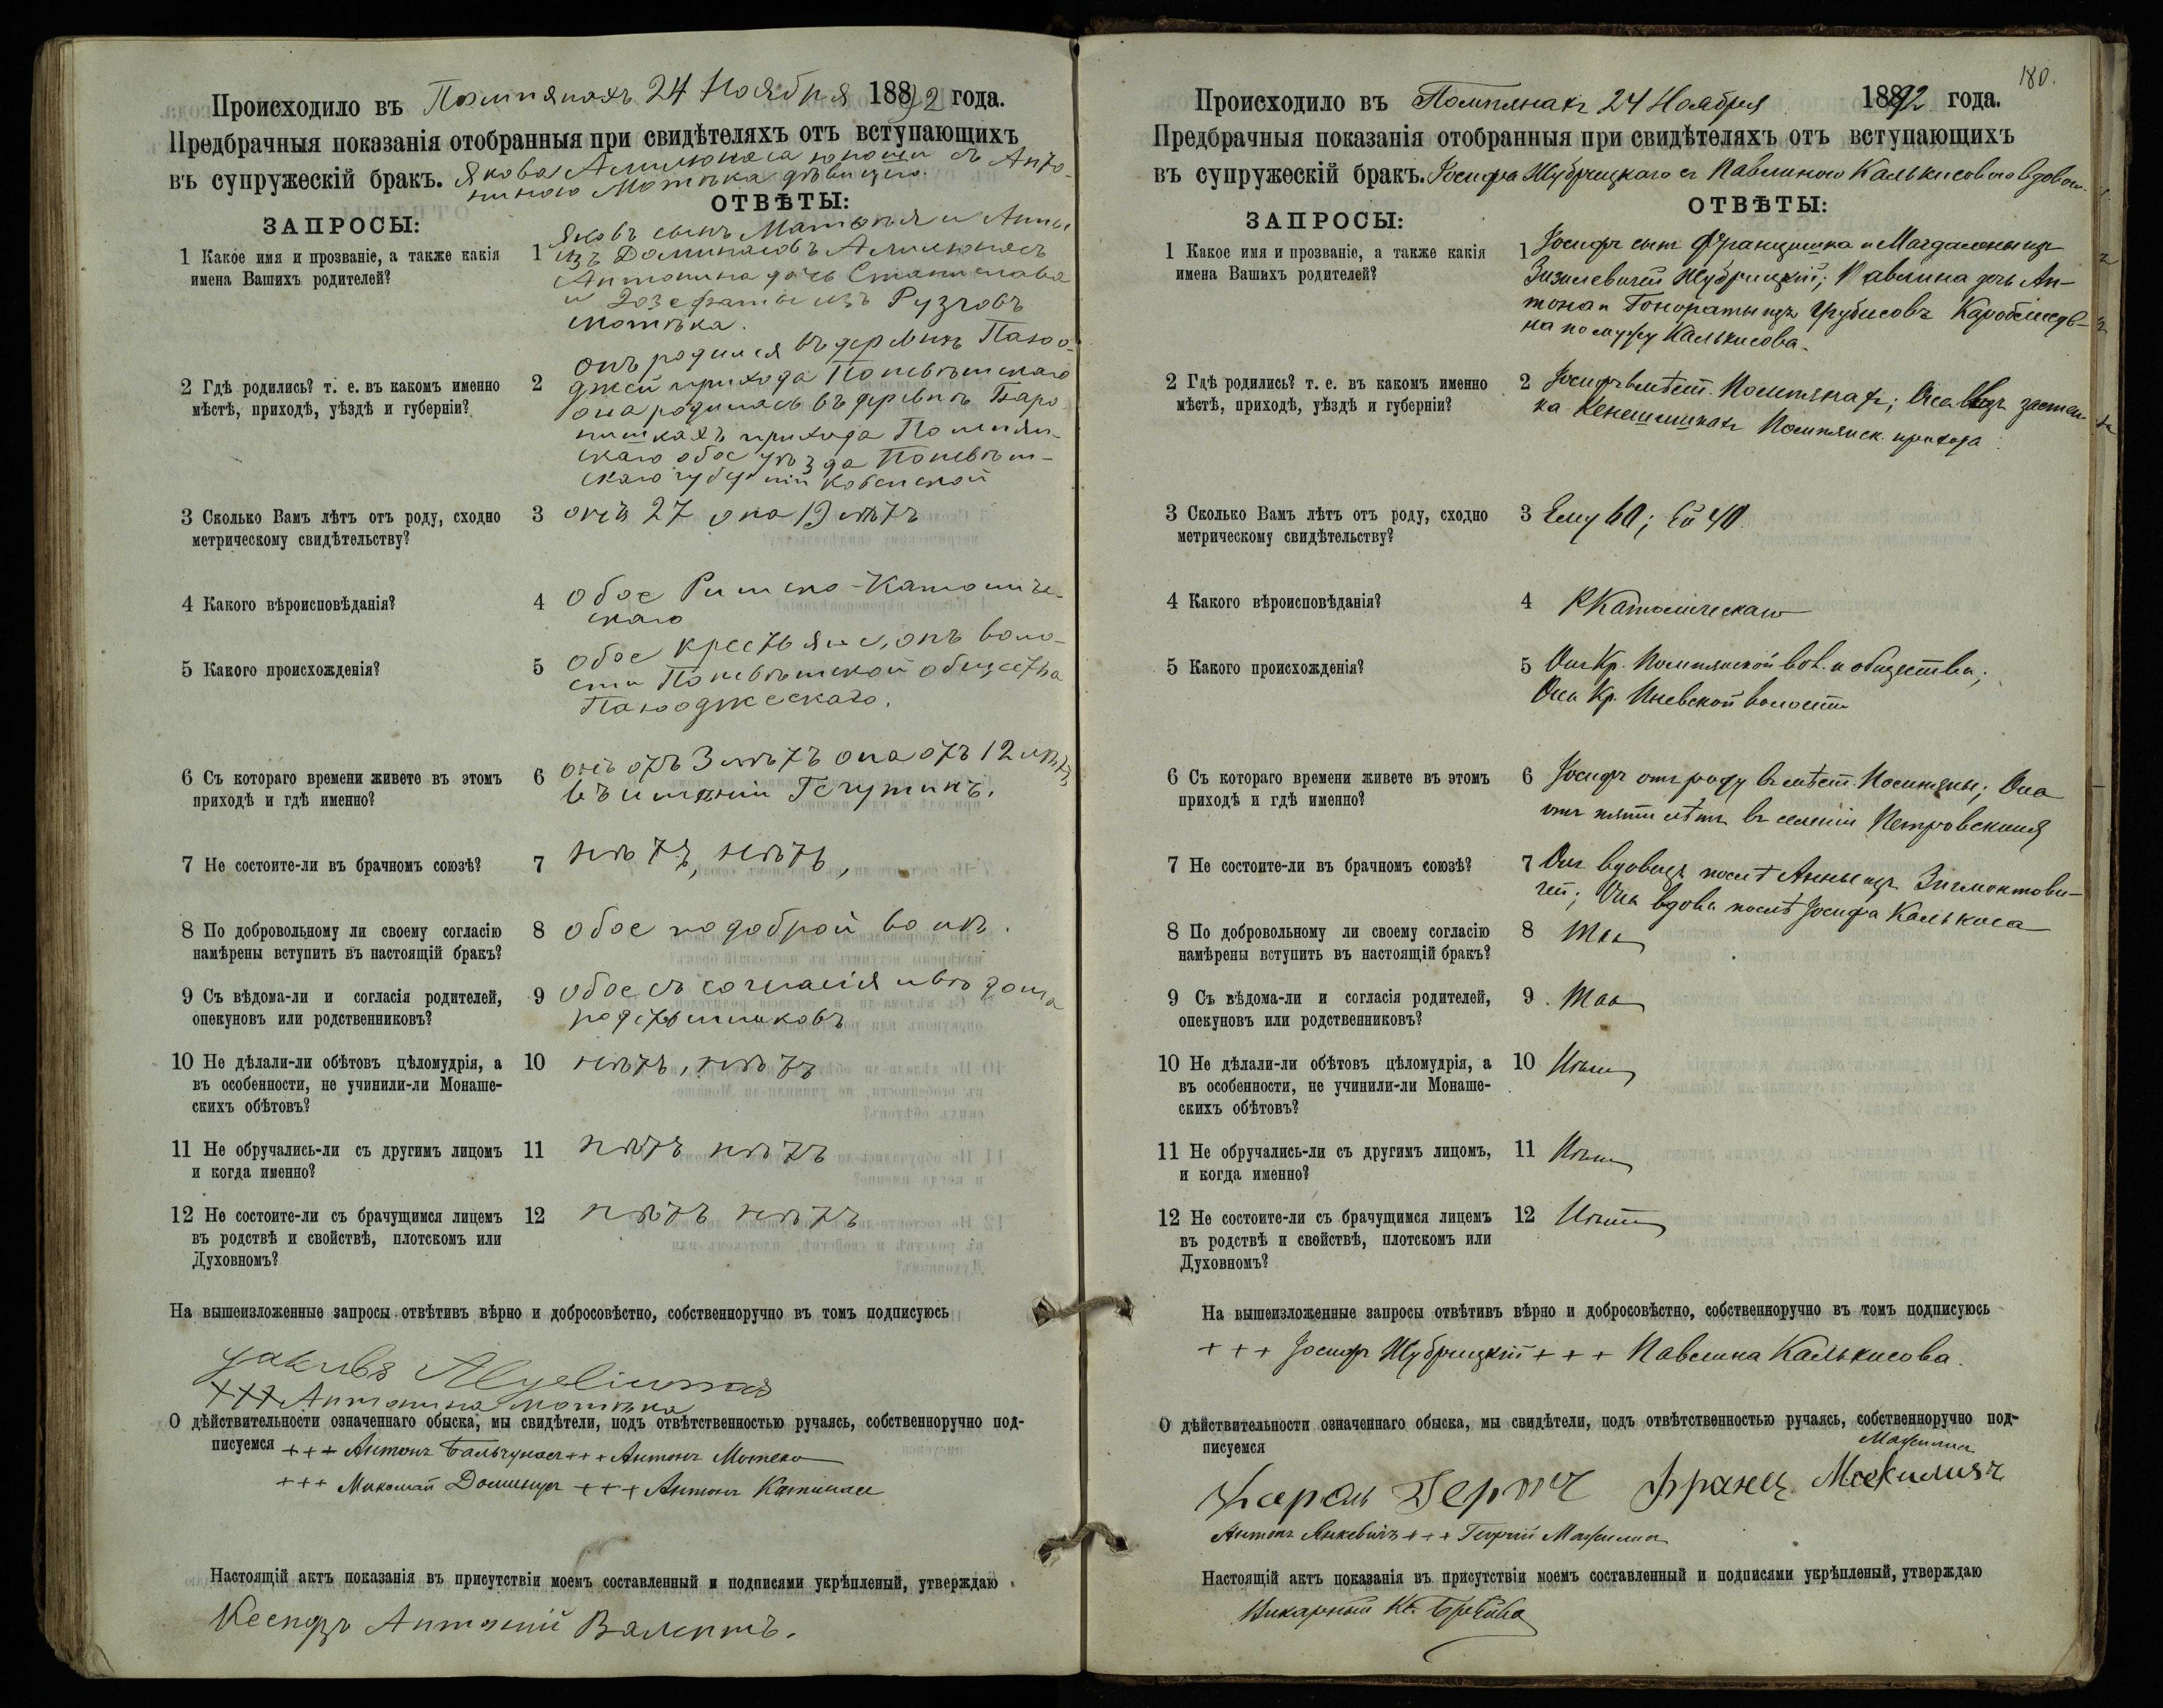 Происходило въ Помпянахъ 24 Ноября 1892 года.
Предбрачныя показанія отобранныя при свидѣтеляхъ отъ вступающихъ
въ супружескій бракъ. Якова юноши съ Анто-
ниною Мотѣка дѣвицею.
ЗАПРОСЫ:
ОТВѢТЫ:
1 Какое имя и прозваніе, а также какія
имена Вашихъ родителей?
1 Яковъ сынъ и Анны
изъ
Антонина дочь Станислава
и Іозефаты изъ Рузговъ
Мотѣка.
2 Гдѣ родились? т. е. въ какомъ именно
мѣстѣ, приходѣ, уѣздѣ и губерніи?
2 онъ родился въ деревнѣ Паюо-
джей прихода Поневѣжскаго
она родилась въ деревнѣ
прихода Помпян-
скаго обое уѣзда Поневѣж-
скаго губерніи Ковенской
3 Сколько Вамъ лѣтъ отъ роду, сходно
метрическому свидѣтельству?
3 онъ 27 она 19 лѣтъ
4 Какого вѣроисповѣданія?
4 обое Римско-Католиче-
скаго
5 Какого происхожденія?
5 обое крестьяне, онъ воло-
сти Поневѣжской общества
Паюоджескаго.
6 Съ котораго времени живете въ этомъ
приходѣ и гдѣ именно?
6 онъ отъ 3 лѣтъ она отъ 12 лѣтъ
въ имѣніи
7 Не состоите-ли въ брачномъ союзѣ?
7 нѣтъ, нѣтъ,
8 По добровольному ли своему согласію
намѣрены вступить въ настоящій бракъ?
8 обое по доброй волѣ.
9 Съ вѣдома-ли и согласія родителей,
опекуновъ или родственниковъ?
9 обое съ согласія и вѣдома
родственниковъ
10 Не дѣлали-ли обѣтовъ цѣломудрія, а
въ особенности, не учинили-ли Монаше-
скихъ обѣтовъ?
10 нѣтъ, нѣтъ
11 Не обручались-ли съ другимъ лицомъ
и когда именно?
11 нѣтъ нѣтъ
12 Не состоите-ли съ брачущимся лицемъ
въ родствѣ и свойствѣ, плотскомъ или
Духовномъ?
12 нѣтъ нѣтъ
На вышеизложенные запросы отвѣтивъ вѣрно и добросовѣстно, собственноручно въ томъ подписуюсь
+++ Антонина Мотѣка
О дѣйствительности означеннаго обыска, мы свидѣтели, подъ отвѣтственностью ручаясь, собственноручно под-
писуемся +++ Антонъ Бальчунасъ +++ Антонъ Мотеко
+++ Миколай +++ Антонъ
Настоящій актъ показанія въ присутствіи моемъ составленный и подписями укрѣпленый, утверждаю
Ксендзъ Антоній Валентъ.
180.
Происходило въ Помпянахъ 24 Ноября 1892 года.
Предбрачныя показанія отобранныя при свидѣтеляхъ отъ вступающихъ
въ супружескій бракъ. Іосифа Жубрицкаго съ Павлиною Калькисовою вдовою.
ЗАПРОСЫ:
ОТВѢТЫ:
1 Какое имя и прозваніе, а также какія
имена Вашихъ родителей?
1 Іосифъ сынъ Францишка и Магдалены изъ
Жубрицкій; Павлина дочь Ан-
тона и Гонораты изъ Грубисовъ
на по мужу Калькисова.
2 Гдѣ родились? т. е. въ какомъ именно
мѣстѣ, приходѣ, уѣздѣ и губерніи?
2 Іосифъ въ мѣст. Помпянахъ; Она застен-
ка Помпянск. прихода
3 Сколько Вамъ лѣтъ отъ роду, сходно
метрическому свидѣтельству?
3 Ему 60; Ей 40.
4 Какого вѣроисповѣданія?
4 Р Католическаго
5 Какого происхожденія?
5 Онъ Кр. Помпянской вол. и общества;
Она Кр. волости
6 Съ котораго времени живете въ этомъ
приходѣ и гдѣ именно?
6 Іосифъ отъ роду въ мѣст. Помпяны; Она
отъ пяти лѣтъ въ селеніи
7 Не состоите-ли въ брачномъ союзѣ?
7 Онъ вдовецъ послѣ Анны изъ Зигмонтови-
чей; Она вдова послѣ Іосифа Калькиса
8 По добровольному ли своему согласію
намѣрены вступить въ настоящій бракъ?
8 Так
9 Съ вѣдома-ли и согласія родителей,
опекуновъ или родственниковъ?
9 Так
10 Не дѣлали-ли обѣтовъ цѣломудрія, а
въ особенности, не учинили-ли Монаше-
скихъ обѣтовъ?
10 Нѣтъ
11 Не обручались-ли съ другимъ лицомъ,
и когда именно?
11 Нѣтъ
12 Не состоите-ли съ брачущимся лицемъ
въ родствѣ и свойствѣ, плотскомъ или
Духовномъ?
12 Нѣтъ
На вышеизложенные запросы отвѣтивъ вѣрно и добросовѣстно, собственноручно въ томъ подписуюсь
+ + + Іосифъ Жубрицкій + + + Павлина Калькисова.
О дѣйствительности означеннаго обыска, мы свидѣтели, подъ отвѣтственностью ручаясь, собственноручно под-
писуемся
Кароль Франц
Антонъ Янкевичъ +++ Георгій
Настоящій актъ показанія въ присутствіи моемъ составленный и подписями укрѣпленый, утверждаю
Викарный Кс.